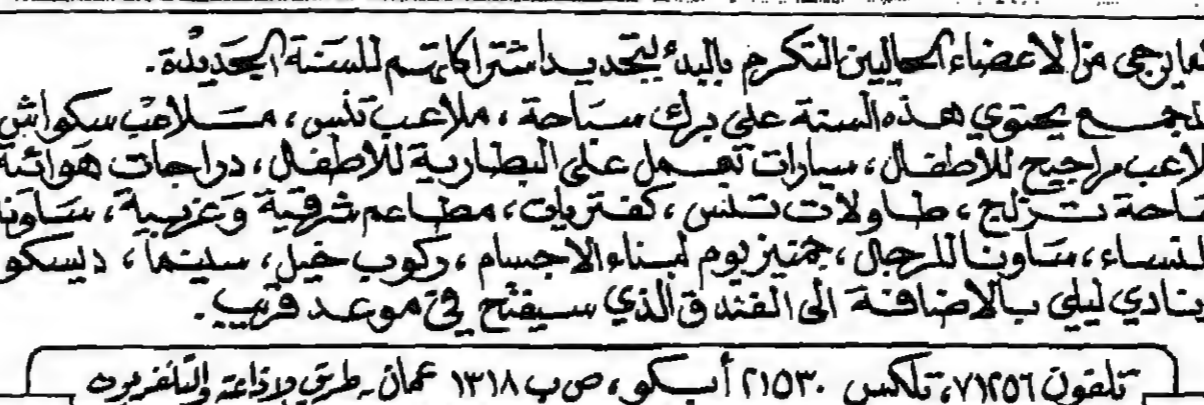 كما يرجى من الاعضاء الحاليين التكرم بالبدء بتجديد اشتراكاتهم للسنة الجديدة.
المجمع يحتوي هذه السنة على برك سباحة، ملاعب تنس، مسلاعب سكواش
ملاعب مراجيح للأطفال، سيارات تعمل على البطارية للأطفال، دراجات هوائية
ساحة تزلج، طاولات تنس، كفتريات، مطاعم شرقية وغربية، ساونا
للنساء، ساونا للرجال، جمنيزيوم لبناء الاجسام، ركوب خيل، سينما، ديسكو
نادي ليلي بالاضافة الى الفندق الذي سيفتح في موعد قريب.
تلفون ٧١٢٥٦، تلكس ٢١٥٣٠ أبسكو، ص ب ١٣١٨ عمان - طريق الإذاعة والتلفزيون